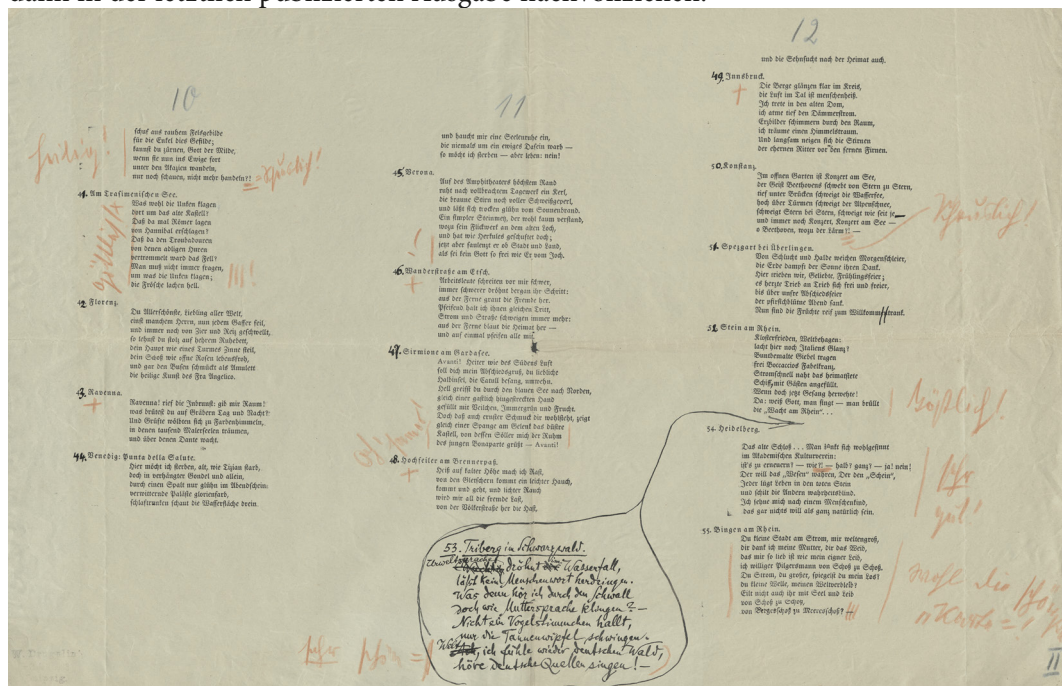 dann in der letztlich publizierten Ausgabe nachvollziehen.
10
schuf aus rauhem Felsgebilde
für die Enkel dies Gefilde;
kannst du zürnen, Gott der Milde,
wenn sie nun ins Ewige fort
unter den Akazien wandeln,
nur noch schauen, nicht mehr handeln?!
41. Am Trasimenischen See.
Was wohl die Unken klagen
dort um das alte Kastell?
Daß da mal Römer lagen
von Hannibal erschlagen?
Daß da den Troubadouren
von denen adligen Huren
vertrommelt ward das Fell?
Man muß nicht immer fragen,
um was die Unken klagen;
die Frösche lachen hell.
!!!
42. Florenz.
Du Allerschönste, Liebling aller Welt,
einst manchem Herrn, nun jedem Gaffer feil,
und immer noch von Zier und Reiz geschwellt,
so lehnst du stolz auf deinem Ruhebett,
dein Haupt wie eines Turmes Zinne steil,
dein Schoß wie offne Rosen lebensfroh,
und gar den Busen schmückt als Amulett
die heilige Kunst des Fra Angelico.
43. Ravenna.
Ravenna! rief die Inbrunst: gib mir Raum!
was brütest du auf Gräbern Tag und Nacht?
Und Grüfte wölbten sich zu Farbenhimmeln,
in denen tausend Malerseelen träumen,
und über denen Dante wacht.
44. Venedig: Punta della Salute.
Hier möcht ich sterben, alt, wie Tizian starb,
doch in verhängter Gondel und allein,
durch einen Spalt nur glühn im Abendschein:
verwitternde Paläste glorienfarb,
schlaftrunken schaut die Wasserfläche drein.
11
und haucht mir eine Seelenruhe ein,
die niemals um ein ewiges Dasein warb —
so möcht ich sterben — aber leben: nein!
45. Verona.
Auf des Amphitheaters höchstem Rand
ruht nach vollbrachtem Tagewerk ein Kerl,
die braune Stirn noch voller Schweißgeperl,
und läßt sich trocken glühn vom Sonnenbrand.
Ein simpler Steinmetz, der wohl kaum verstand,
wozu sein Flickwerk an dem alten Loch,
und hat wie Herkules geschuftet doch;
jetzt aber faulenzt er ob Stadt und Land,
als sei kein Gott so frei wie Er vom Joch.
46. Wanderstraße am Etsch.
Arbeitsleute schreiten vor mir schwer,
immer schwerer dröhnt bergan ihr Schritt:
aus der Ferne graut die Fremde her.
Pfeifend halt ich ihnen gleichen Tritt,
Strom und Straße schweigen immer mehr:
aus der Ferne blaut die Heimat her —
und auf einmal pfeifen alle mit.
47. Sirmione am Gardasee.
Avanti! Heiter wie des Südens Luft
soll dich mein Abschiedsgruß, du lieblichst
Halbinsel, die Catull besang, umwehn.
Hell greifst du durch den blauen See nach Norden,
gleich einer gastlich hingestreckten Hand
gefüllt mit Veilchen, Immergrün und Frucht.
Doch daß auch ernster Schmuck dir wohlsteht, zeigt
gleich einer Spange am Gelenk das düstre
Kastell, von dessen Söller mich der Ruhm
des jungen Bonaparte grüßt — Avanti!
48. Hochfeiler am Brennerpaß.
Heiß auf kalter Höhe mach ich Rast,
von den Gletschern kommt ein leichter Hauch,
kommt und geht, und lichter Rauch
wird mir all die fremde Last,
von der Völkerstraße her die Hast,
53. Triberg im Schwarzwald.
Urweltsprache dröhnt der Wasserfall,
läßt kein Menschenwort herdringen.
Was denn hör ich durch den Schwall
doch wie Muttersprache klingen? —
Nicht ein Vogelstimmchen hallt,
nur die Tannenwipfel schwingen.
ich fühle wieder deutschen Wald,
höre deutsche Quellen singen! —
sehr schön =
12
und die Sehnsucht nach der Heimat auch.
49. Innsbruck.
Die Berge glänzen klar im Kreis,
die Luft im Tal ist menschenheiß.
Ich trete in den alten Dom,
ich atme tief den Dämmerstrom.
Erzbilder schimmern durch den Raum,
ich träume einen Himmelstraum.
Und langsam neigen sich die Stirnen
der ehernen Ritter vor den fernen Firnen.
50. Konstanz.
Im offnen Garten ist Konzert am See,
der Geist Beethovens schwebt von Stern zu Stern,
tief unter Brücken schweigt die Wasserfee,
hoch über Türmen schweigt der Alpenschnee,
schweigt Stern bei Stern, schweigt wie seit je —
und immer noch Konzert, Konzert am See —
o Beethoven, wozu der Lärm?! —
51. Spezgart bei Überlingen.
Von Schlucht und Halde weichen Morgenschleier,
die Erde dampft der Sonne ihren Dank.
Hier rieben wir, Geliebte, Frühlingsfeier;
es herzte Trieb an Trieb sich frei und freier,
bis über unsre Abschiedsfeier
der pfirsichblütne Abend sank.
Nun sind die Früchte reif zum Willkommstrunk.
52. Stein am Rhein.
Klosterfrieden, Weltbehagen:
lacht hier noch Italiens Glanz?
Buntbemalte Giebel tragen
frei Boccaccios Fabelkranz.
Stromschnell naht das heimatstete
Schiff, mit Gästen angefüllt.
Wenn doch jetzt Gesang herwehte!
Da: weiß Gott, man singt — man brüllt
die „Wacht am Rhein“ . . .
54. Heidelberg.
Das alte Schloß . . . Man zankt sich wohlgesinnt
im Akademischen Kulturverein:
ist's zu erneuern? — wie?! — halb? ganz? — ja! nein!
Der will das „Wesen“ wahren, Der den „Schein“,
Jeder lügt Leben in den toten Stein
und schilt die Andern wahrheitsblind.
Ich sehne mich nach einem Menschenkind,
das gar nichts will als ganz natürlich sein.
55. Bingen am Rhein.
Du kleine Stadt am Strom, mir weltengroß,
dir dankt ich meine Mutter, dir das Weib,
das mir so lieb ist wie mein eigner Leib,
ich williger Pilgersmann von Schoß zu Schoß.
Du Strom, du großer, spiegelst du mein Los?
du kleine Welle, meinen Weltverbleib?
Eilt nicht auch ihr mit Seel und Leib
von Schoß zu Schoß,
von Bergesschoß zu Meeresschoß? —
Köstlich!
sehr
gut!
II